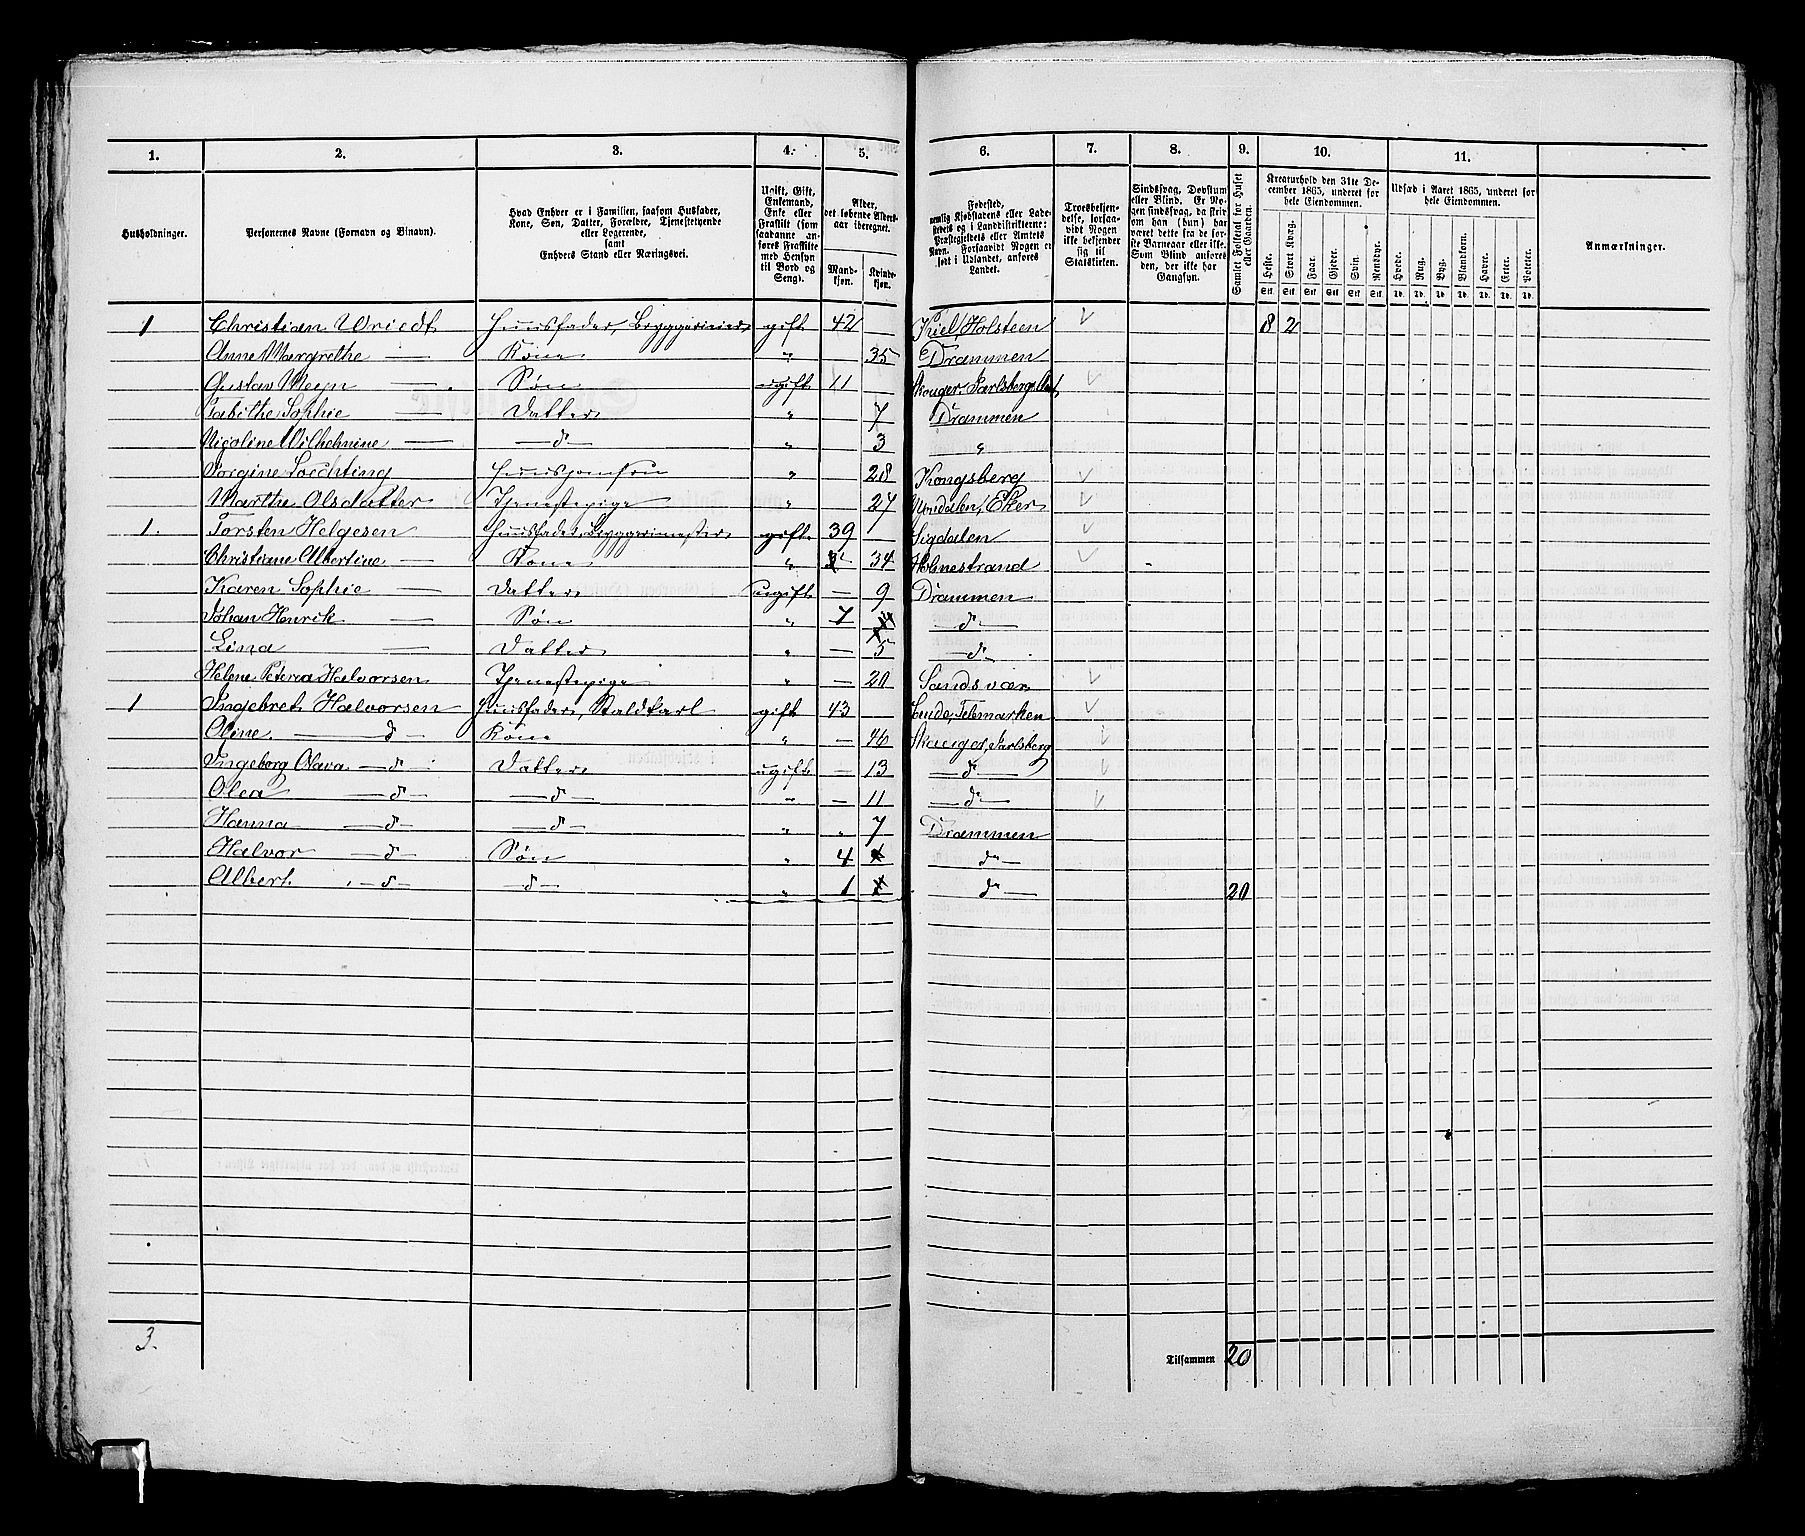 1. 2. 3. 4. 5. 6. 7. 8. 9. 10. 11.
Husholdninger.
Personernes Navne (Fornavn og Binavn).
Hvad Enhver er i Familien, saasom Husfader, Kone, Søn, Datter, Forældre, Tjenestetyende eller Logerende, samt Enhvers Stand eller Næringsvei.
Ugift, Gift, Enkemand, Enke eller Fraskilt (som saadanne anføres Fraskilte med Hensyn til Bord og Seng).
Alder, det løbende Aldersaar iberegnet.
Mandkjøn. Kvindekjøn.
Fødested, nemlig Kjøbstadens eller Ladestedets og i Landdistrikterne: Præstegjeldets eller Amtets Navn. Forsaavidt Nogen er født i Udlandet, anføres Landet.
Troesbekjendelse, forsaavidt Nogen ikke bekjender sig til Statskirken.
Sindssvag, Døvstum eller Blind. Er Nogen sindssvag, da strir om han (hun) har været dette fra de første Barneaar eller ikke. Som Blind anføres den, der ikke har Gangsyn.
Samlet Folketal for Huset eller Gaarden.
Kreaturhold den 31te December 1865, underet for hele Eiendommen.
Heste. Stort Kvæg. Faar. Gjeder. Svin. Rensdyr.
Stk. Stk. Stk. Stk. Stk. Stk.
Udsæd i Aaret 1865, underet for hele Eiendommen.
Hvede. Rug. Byg. Blandkorn. Havre. Erter. Poteter.
Td. Td. Td. Td. Td. Td. Td.
Anmærkninger.
1 Christian Wriedt Huusfader, gift 42 Kiel, Holsteen 8 2
Anne Margrethe — Kone " 35 Drammen
Gustav — Søn ugift 11 Jarlsbergs Amt
Tabithe Sophie — Datter " 7 Drammen
Nicoline Wilhelmine — —d— " 3 "
Huusjomfru " 28 Kongsberg
Marthe Olsdatter Tjenestepige " 27 Eker
1. Torsten Helgesen Huusfader, Bryggerimester gift 39 Sigdalen
Christiane Albertine — Kone " 34 Holmestrand
Karen Sophie — Datter ugift — 9 Drammen
Johan Henrik — Søn " 7 —d—
Lina — Datter " — 5 —d—
Helene Petrea Halvorsen Tjenestepige " — 20 Sandsvær
1 Ingebret Halvorsen Huusfader, Staldkarl gift 43 Telemarken
Oline —d— Kone " — 46 Jarlsberg
Ingeborg Olava —d— Datter ugift — 13 —d—
Olea —d— —d— " — 11 —d—
Hanna —d— —d— " " 7 Drammen
Halvor —d— Søn " 4 d—
Albert —d— —d— " 1 d— 20
3. Tilsammen 20